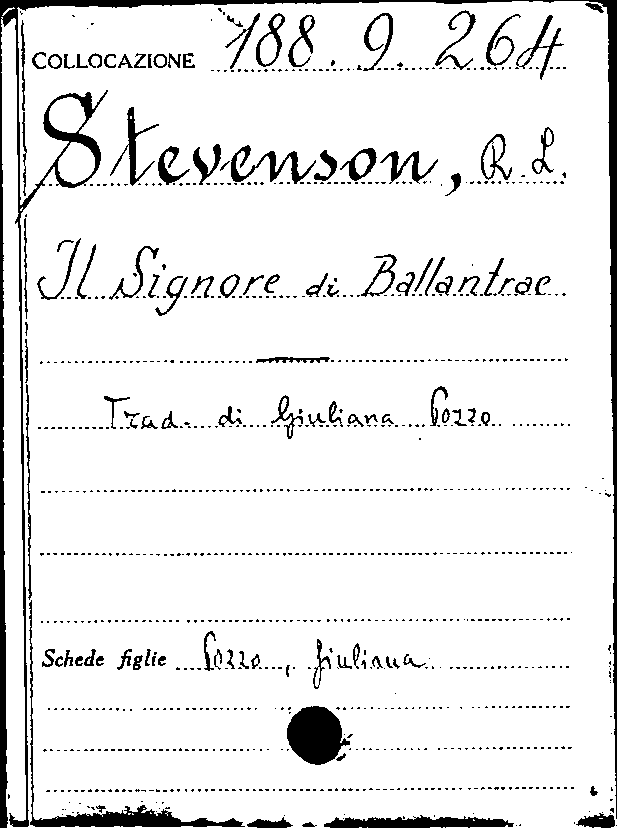 COLLOCAZIONE 188.9.264
Stevenson, R.L.
Il Signore di Ballantrae
Trad. di Giuliana Pozzo
Schede figlie Pozzo, Giuliana